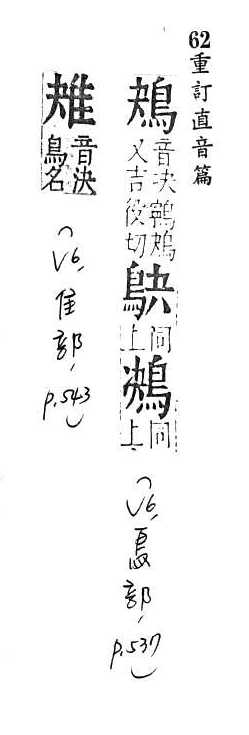 62重訂直音篇
鴂 音決 鴂 又吉役切 同上 同上 (V6, 鳥部, p.537)
音決 鳥名 (V6, 隹部, p.543)